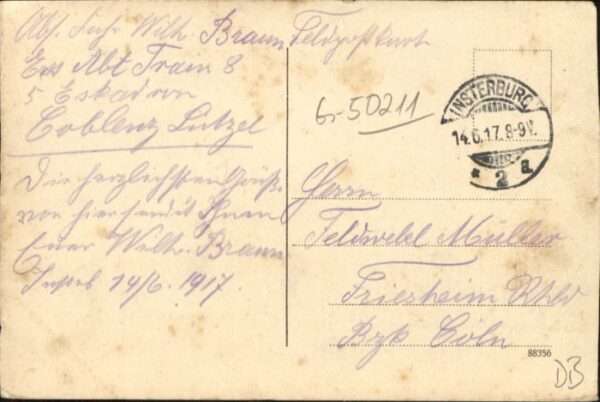 Abs. Fahr. Wilh. Braun
Ers Abt Train 8
5 Eskadron
Coblenz Lützel
Die herzlichsten Grüße
von hier sendet Ihnen
Euer Wilh. Braun
14/6. 1917.
Feldpostkarte
6-50211
INSTERBURG
14.6.17.8-9V.
* 2 a
Herrn
Feldwebel Müller
Friesheim Rhld
Bzk Cöln
88356
DB